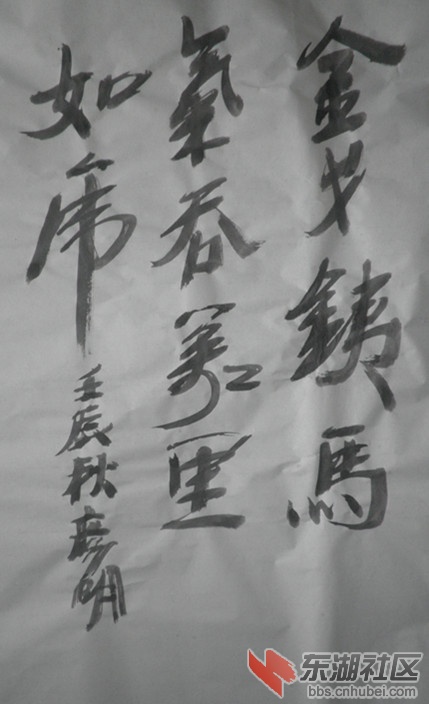 金戈銕馬
氣吞萬里
如虎
壬辰秋彦明
东湖社区
bbs.cnhubei.com